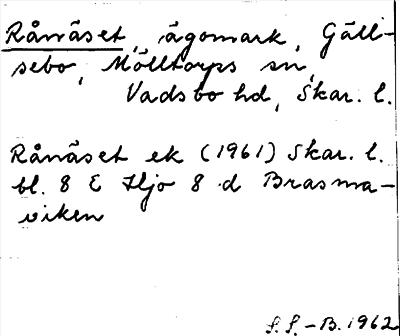 Rånäset, ägomark, Gäll-
sebo, Mölltorps sn,
Vadsbo hd, Skar. l.
Rånäset ek (1961) Skar. l.
bl. 8 E Hjo 8 d Brasma-
viken
S. S. - B. 1962